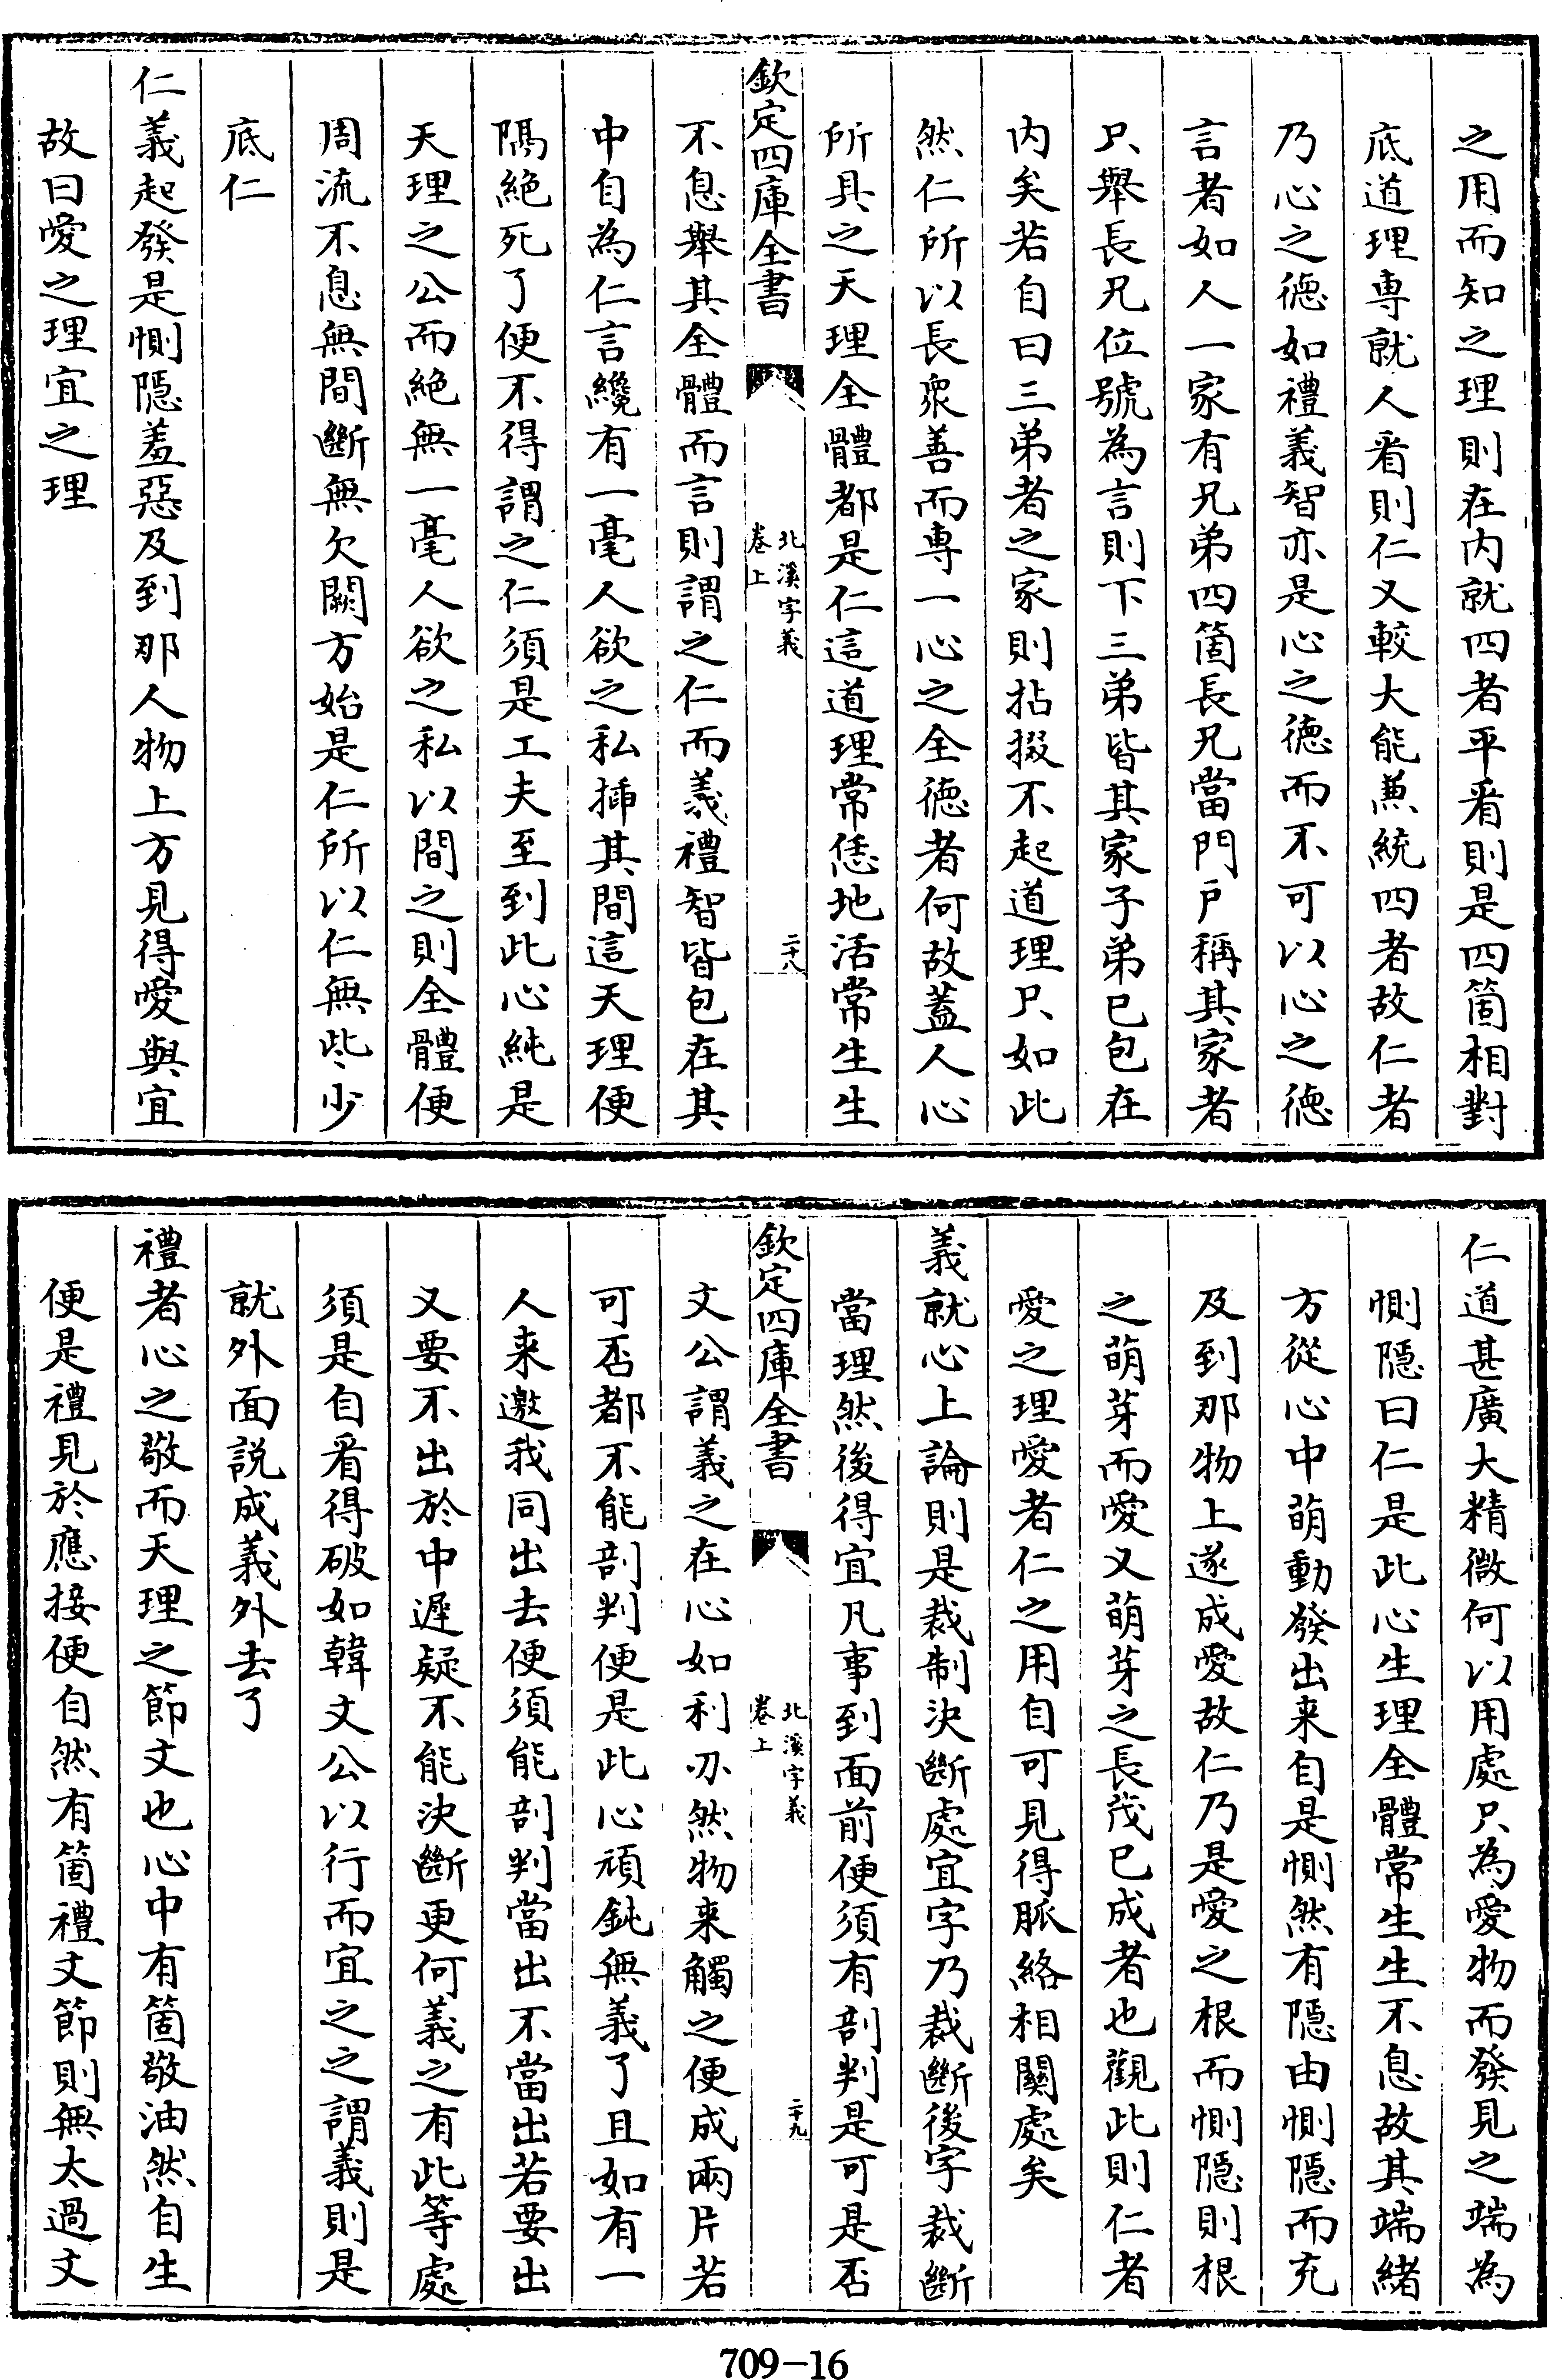 之用而知之理則在内就四者平㸔則是四箇相對
底道理専就人㸔則仁又較大能兼統四者故仁者
乃心之徳如禮義智亦是心之徳而不可以心之徳
言者如人一家有兄弟四箇長兄當門戸稱其家者
只舉長兄位號為言則下三弟皆其家子弟已包在
内矣若自曰三弟者之家則拈掇不起道理只如此
然仁所以長衆善而専一心之全徳者何故蓋人心
所具之天理全體都是仁這道理常恁地活常生生
欽定四庫全書
北溪字義
卷上
二十八
不息舉其全體而言則謂之仁而義禮智皆包在其
中自為仁言纔有一毫人欲之私挿其間這天理便
隔絶死了便不得謂之仁須是工夫至到此心純是
天理之公而絶無一毫人欲之私以間之則全體便
周流不息無間斷無欠闕方始是仁所以仁無些少
底仁
仁義起發是惻隠羞惡及到那人物上方見得愛與宜
故曰愛之理宜之理
仁道甚廣大精微何以用處只為愛物而發見之端為
惻隠曰仁是此心生理全體常生生不息故其端緒
方從心中萌動發出来自是惻然有隠由惻隠而充
及到那物上遂成愛故仁乃是愛之根而惻隠則根
之萌芽而愛又萌芽之長茂已成者也觀此則仁者
愛之理愛者仁之用自可見得脈絡相闗處矣
義就心上論則是裁制決斷處宜字乃裁斷後字裁斷
當理然後得宜凡事到面前便須有剖判是可是否
欽定四庫全書
北溪字義
卷上
二十九
文公謂義之在心如利刃然物来觸之便成兩片若
可否都不能剖判便是此心頑鈍無義了且如有一
人来邀我同出去便須能剖判當出不當出若要出
又要不出於中遲疑不能決斷更何義之有此等處
須是自㸔得破如韓文公以行而宜之之謂義則是
就外面説成義外去了
禮者心之敬而天理之節文也心中有箇敬油然自生
便是禮見於應接便自然有箇禮文節則無太過文
709-16